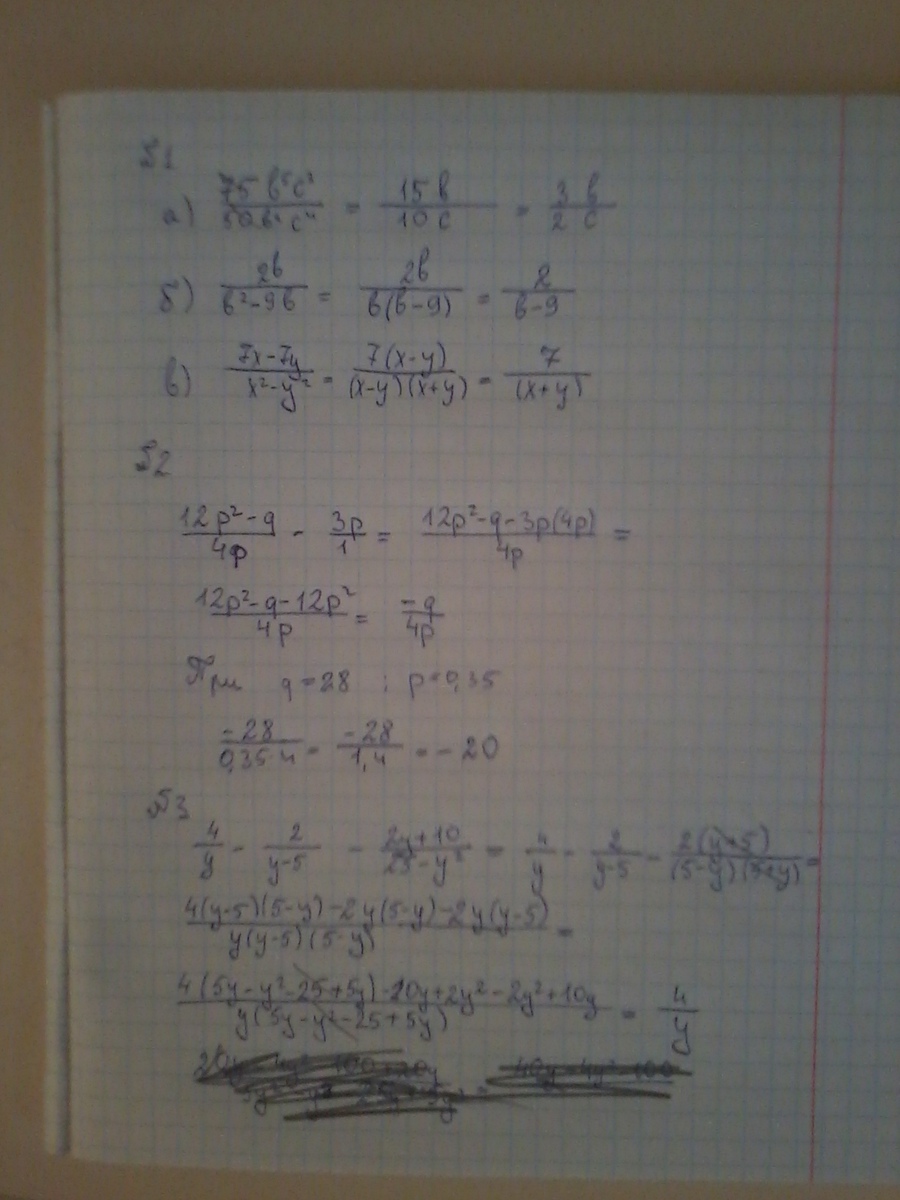 №1
а) 75 b⁵c³/50b⁴c⁴ = 15 b/10 c = 3 b/2 c
б) 2b/b²-9b = 2b/b(b-9) = 2/b-9
в) 7x-7y/x²-y² = 7(x-y)/(x-y)(x+y) = 7/(x+y)
№2
12p²-q/4p - 3p/1 = 12p²-q-3p(4p)/4p =
12p²-q-12p²/4p = -q/4p
При q=28 ; p=0,35
-28/0,35·4 = -28/1,4 = -20
№3
4/y - 2/y-5 - 2y+10/25-y² = 4/y - 2/y-5 - 2(y+5)/(5-y)(5+y) =
4(y-5)(5-y)-2y(5-y)-2y(y-5)/y(y-5)(5-y) =
4(5y-y²-25+5y)-10y+2y²-2y²+10y/y(5y-y²-25+5y) = 4/y